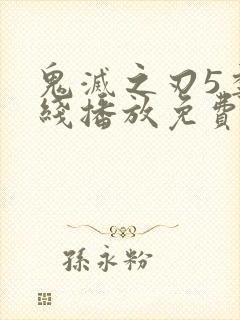 鬼滅之刃5
綫播放免費
孫永粉